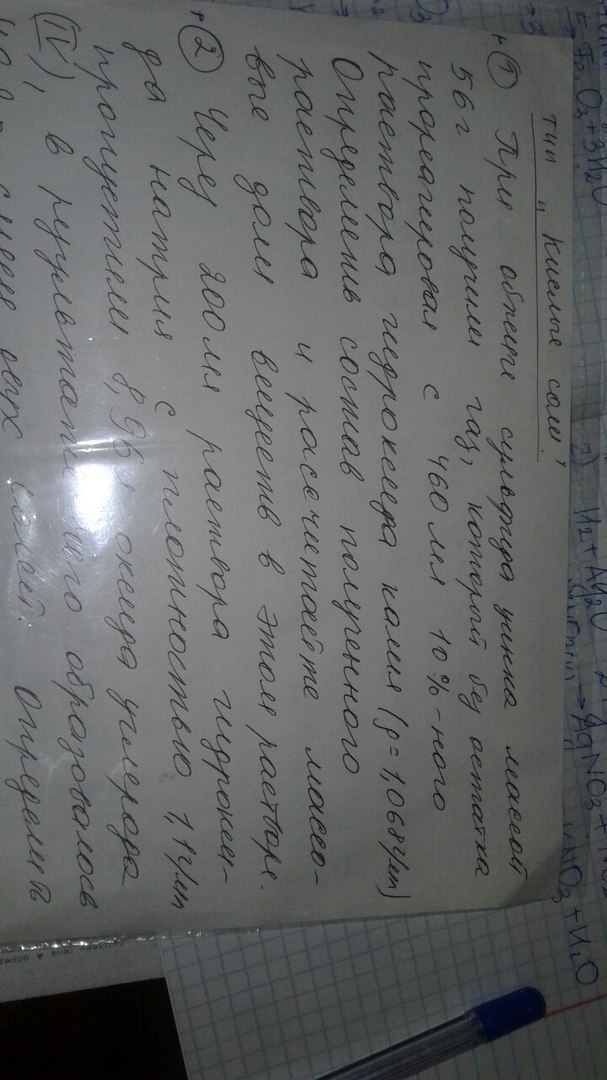 тип „Кислые соли".
① При обжиге сульфида цинка массой
56 г получили газ, который без остатка
прореагировал с 460 мл 10%-ного
раствора гидроксида калия (ρ=1,068 г/мл)
Определить состав полученного
раствора и рассчитайте массо-
вые доли веществ в этом растворе.
② Через 200 мл раствора гидрокси-
да натрия с плотностью 1,1 г/мл
пропустили 8,96 оксида углерода
(IV), в результате чего образовалось
смеси двух солей. Определить
Fe₂O₃+3H₂O
AgNO₃
+H₂O